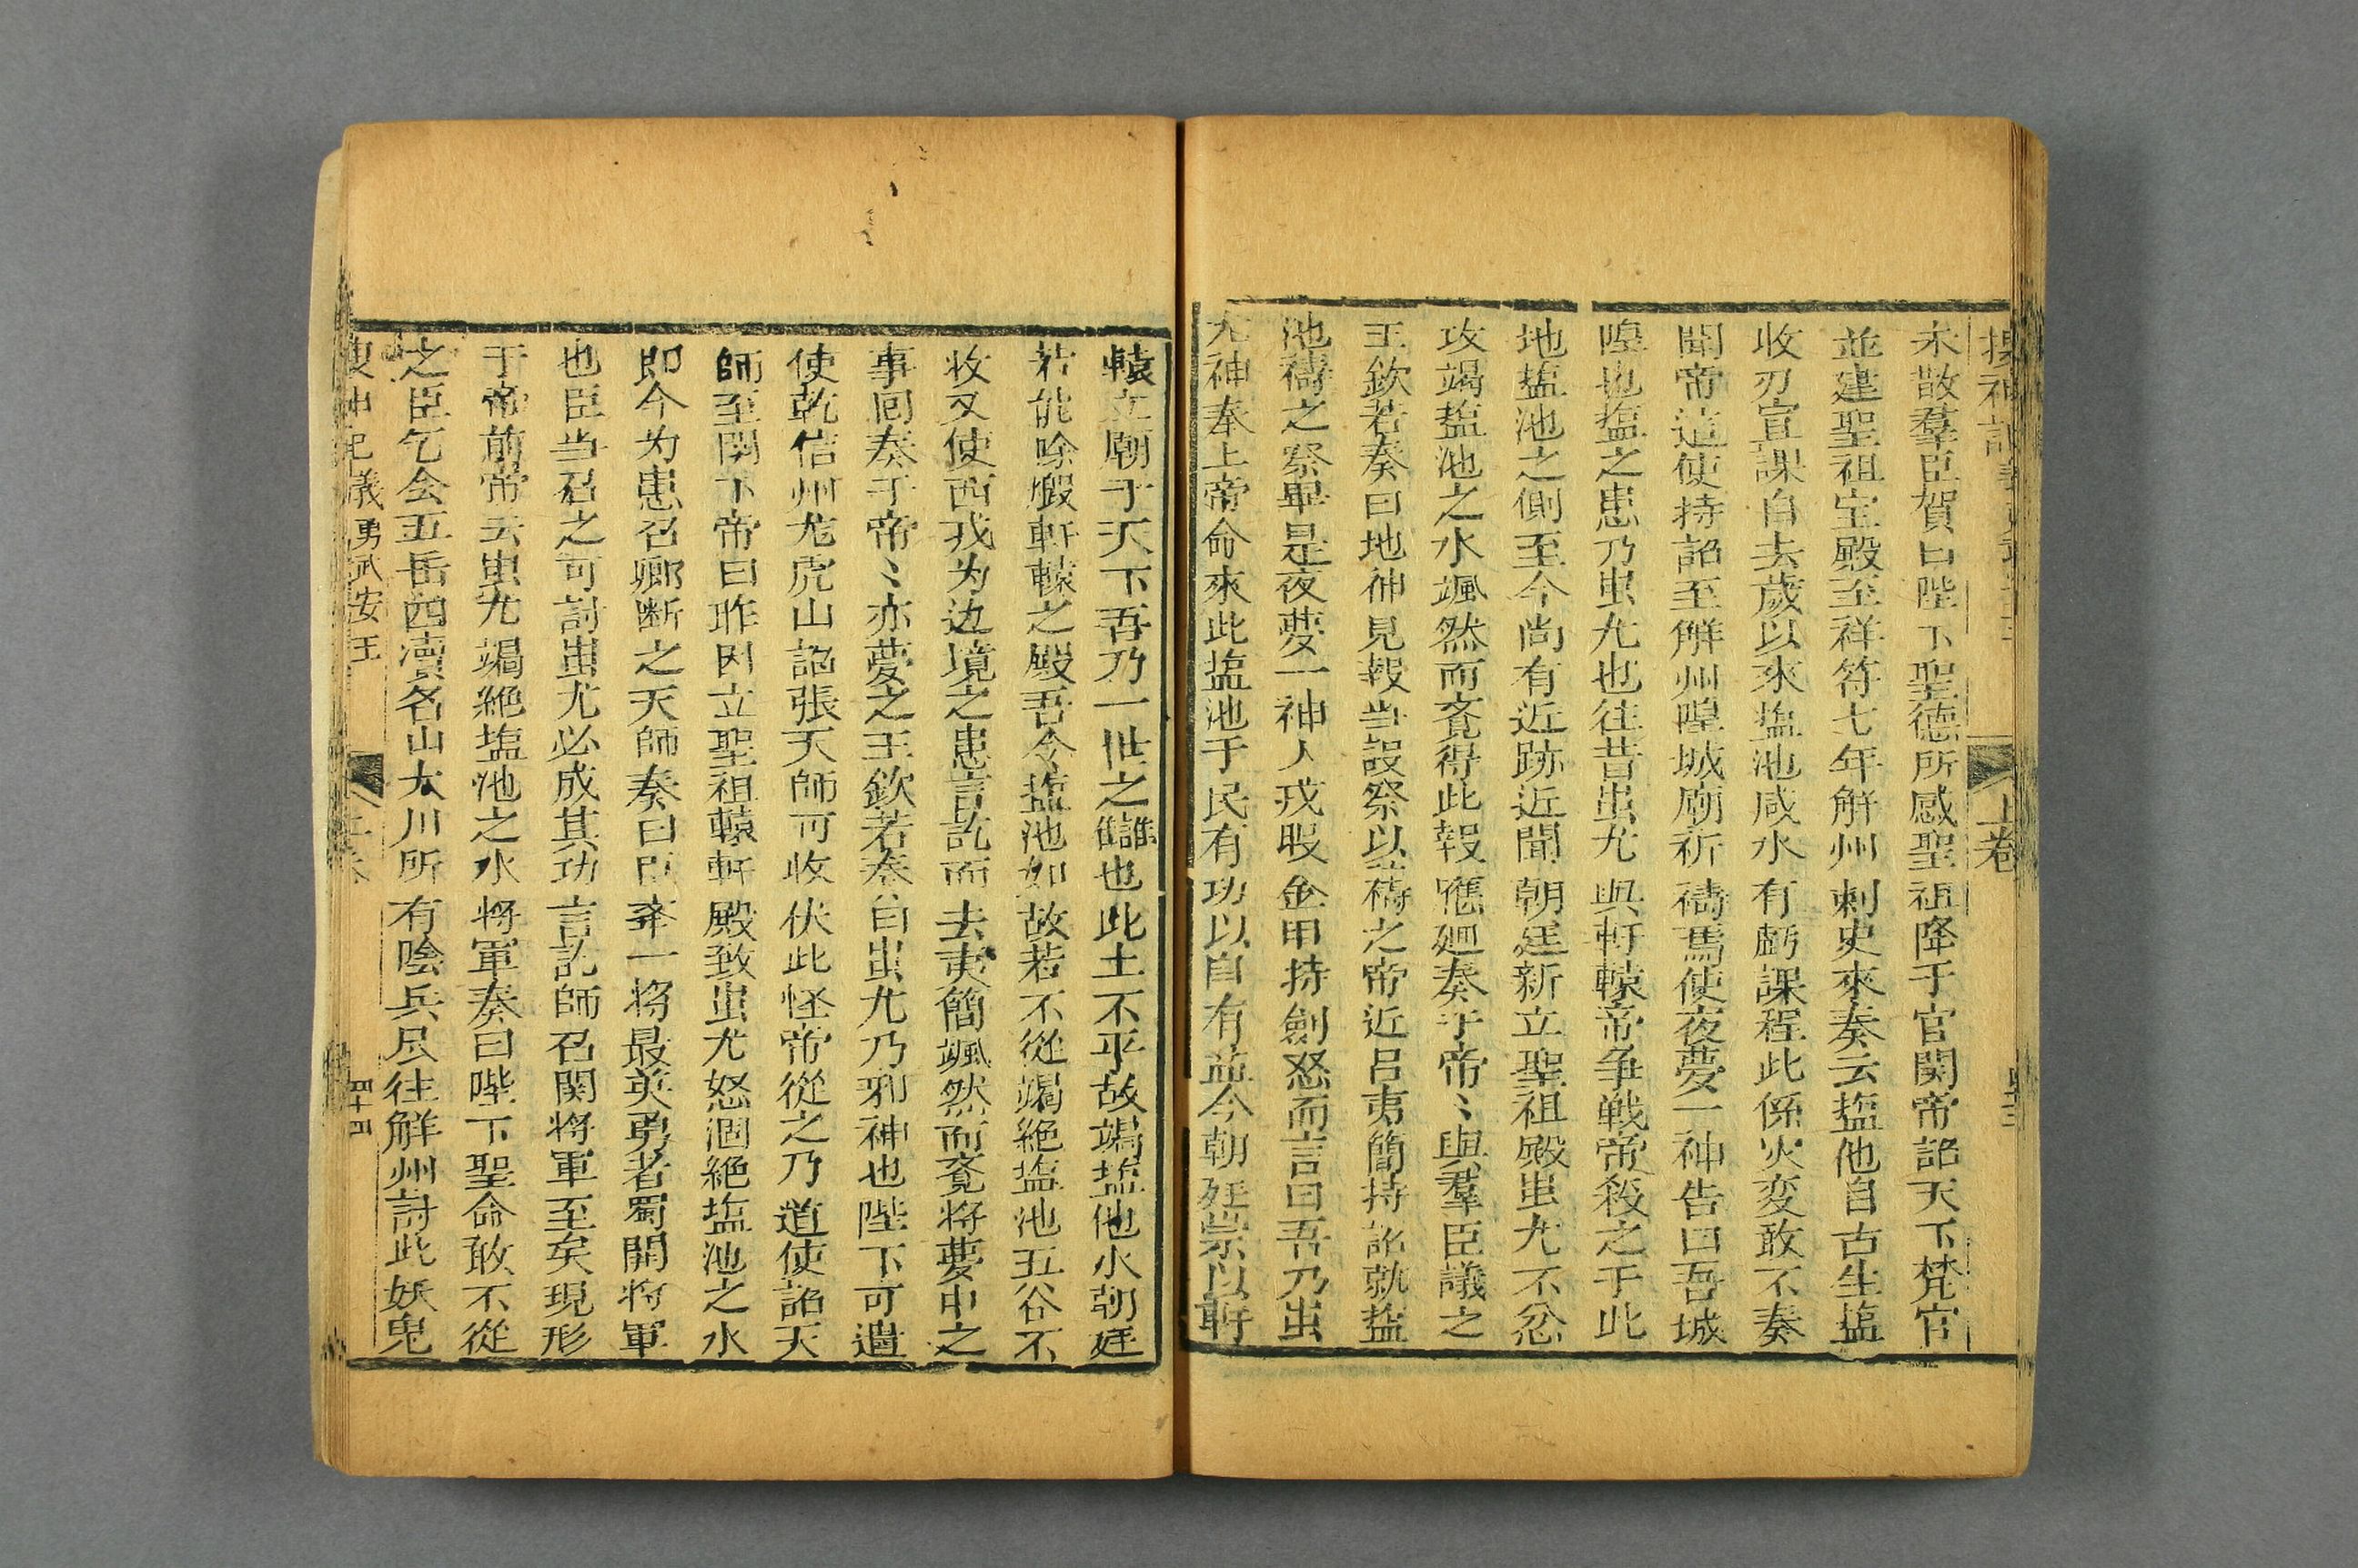 搜神記
上卷
未散羣臣賀曰陛下聖德所感聖祖降于官関帝詔天下梵官
並建聖祖宝殿至祥符七年解州刺史來奏云塩池自古生塩
收刃宣課自去歲以來塩池咸水有虧課程此係灾変敢不奏
聞帝遣使持詔至解州隍城廟祈禱焉使夜夢一神告曰吾城
隍也塩之患乃蚩尤也往昔蚩尤與軒轅帝争戦帝殺之于此
地塩池之側至今尚有近跡近聞朝廷新立聖祖殿蚩尤不忿
攻竭塩池之水颯然而覔得此報應廻奏于帝〻與羣臣議之
王欽若奏曰地神見報当設祭以禱之帝近吕夷簡持詔就塩
池禱之祭畢是夜夢一神人戎服金甲持劍怒而言曰吾乃蚩
尤神奉上帝命來此塩池于民有功以自有益今朝廷崇以軒
轅立廟于天下吾乃一世之讎也此土不平故竭塩池水朝廷
若能除毀軒轅之殿吾令塩池如故若不從竭絶塩池五谷不
收又使西戎为边境之患言訖而去夷簡颯然而覔将夢中之
事囘奏于帝〻亦夢之王欽若奏曰蚩尤乃邪神也陛下可遣
使乾信州龙虎山詔張天師可收伏此怪帝從之乃遣使詔天
師至関下帝曰昨因立聖祖轅軒殿致蚩尤怒涸絶塩池之水
即今为患召卿断之天師奏曰臣举一将最英勇者蜀関将軍
也臣当召之可討蚩尤必成其功言訖師召関将軍至矣現形
于帝前帝云蚩尤竭絶塩池之水将軍奏曰陛下聖命敢不從
之臣乞会五岳四瀆名山大川所有陰兵尽往解州討此妖鬼
搜神記義勇武安王
四十四